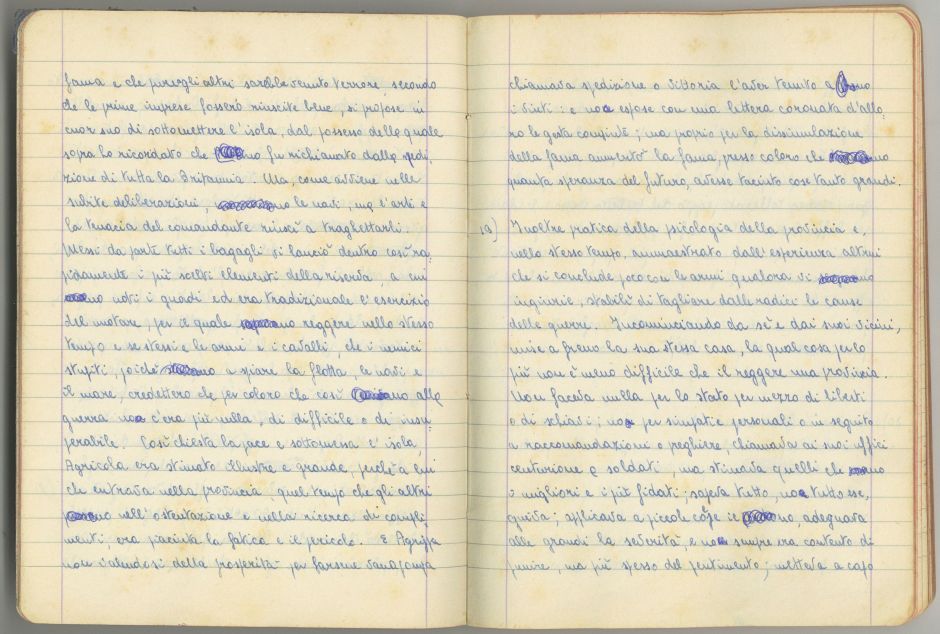 fama e che presso gli altri sarebbe venuto terrore, secondo
che le prime imprese fossero riuscite bene, si propose in
cuor suo di sottomettere l'isola, dal possesso della quale
sopra ho ricordato che no fu richiamato dalla spedi,
zione di tutta la Britannia. Ma, come avviene nelle
subite deliberazioni, no le navi, ma l'arte e
la tenacia del comandante riuscì a traghettarli.
Messi da parte tutti i bagagli si lanciò dentro così ra,
pidamente i più scelti elementi della riserva, a cui
no noti i guadi ed era tradizionale l'esercizio
del nuotare, per il quale no reggere nello stesso
tempo e se stessi e le armi e i cavalli, che i nemici
stupiti, poiché no a spiare la flotta, le navi e
il mare, credettero che per coloro che così no alla
guerra non c'era più nulla, di difficile o di insu,
perabile. Così chiesta la pace e sottomessa l'isola,
Agricola era stimato illustre e grande, perché a lui
che entrava nella provincia, quel tempo che gli altri
no nell'ostentazione e nella ricerca di compli,
menti, era piaciuta la fatica e il pericolo. E Agrippa
non valendosi della prosperità per farsene vana gloria
chiamava spedizione o vittoria l'aver tenuto a no
i vinti: e non espose con una lettera coronata d'allo,
ro le gesta compiute; ma proprio per la dissimulazione
della fama aumentò la fama, presso coloro che no
quanta speranza del futuro, avesse taciuto cose tanto grandi.
19) Inoltre pratica della psicologia della provincia e,
nello stesso tempo, ammaestrato dall'esperienza altrui
che si conclude poco con le armi qualora vi no
ingiurie, stabilì di tagliare dalle radici le cause
delle guerre. Incominciando da sè e dai suoi vicini,
mise a freno la sua stessa casa, la qual cosa per lo
più non è meno difficile che il reggere una provincia.
Non faceva nulla per lo stato per mezzo di liberti
o di schiavi; non per simpatie personali o in seguito
a raccomandazioni o preghiere, chiamava ai suoi uffici
centurione o soldati, ma stimava quelli che no
i migliori e i più fidati; sapeva tutto, non tutto ese,
guiva; applicava a piccole colpe il no, adeguava
alle grandi la severità, e non sempre era contento di
punire, ma più spesso del pentimento; metteva a capo